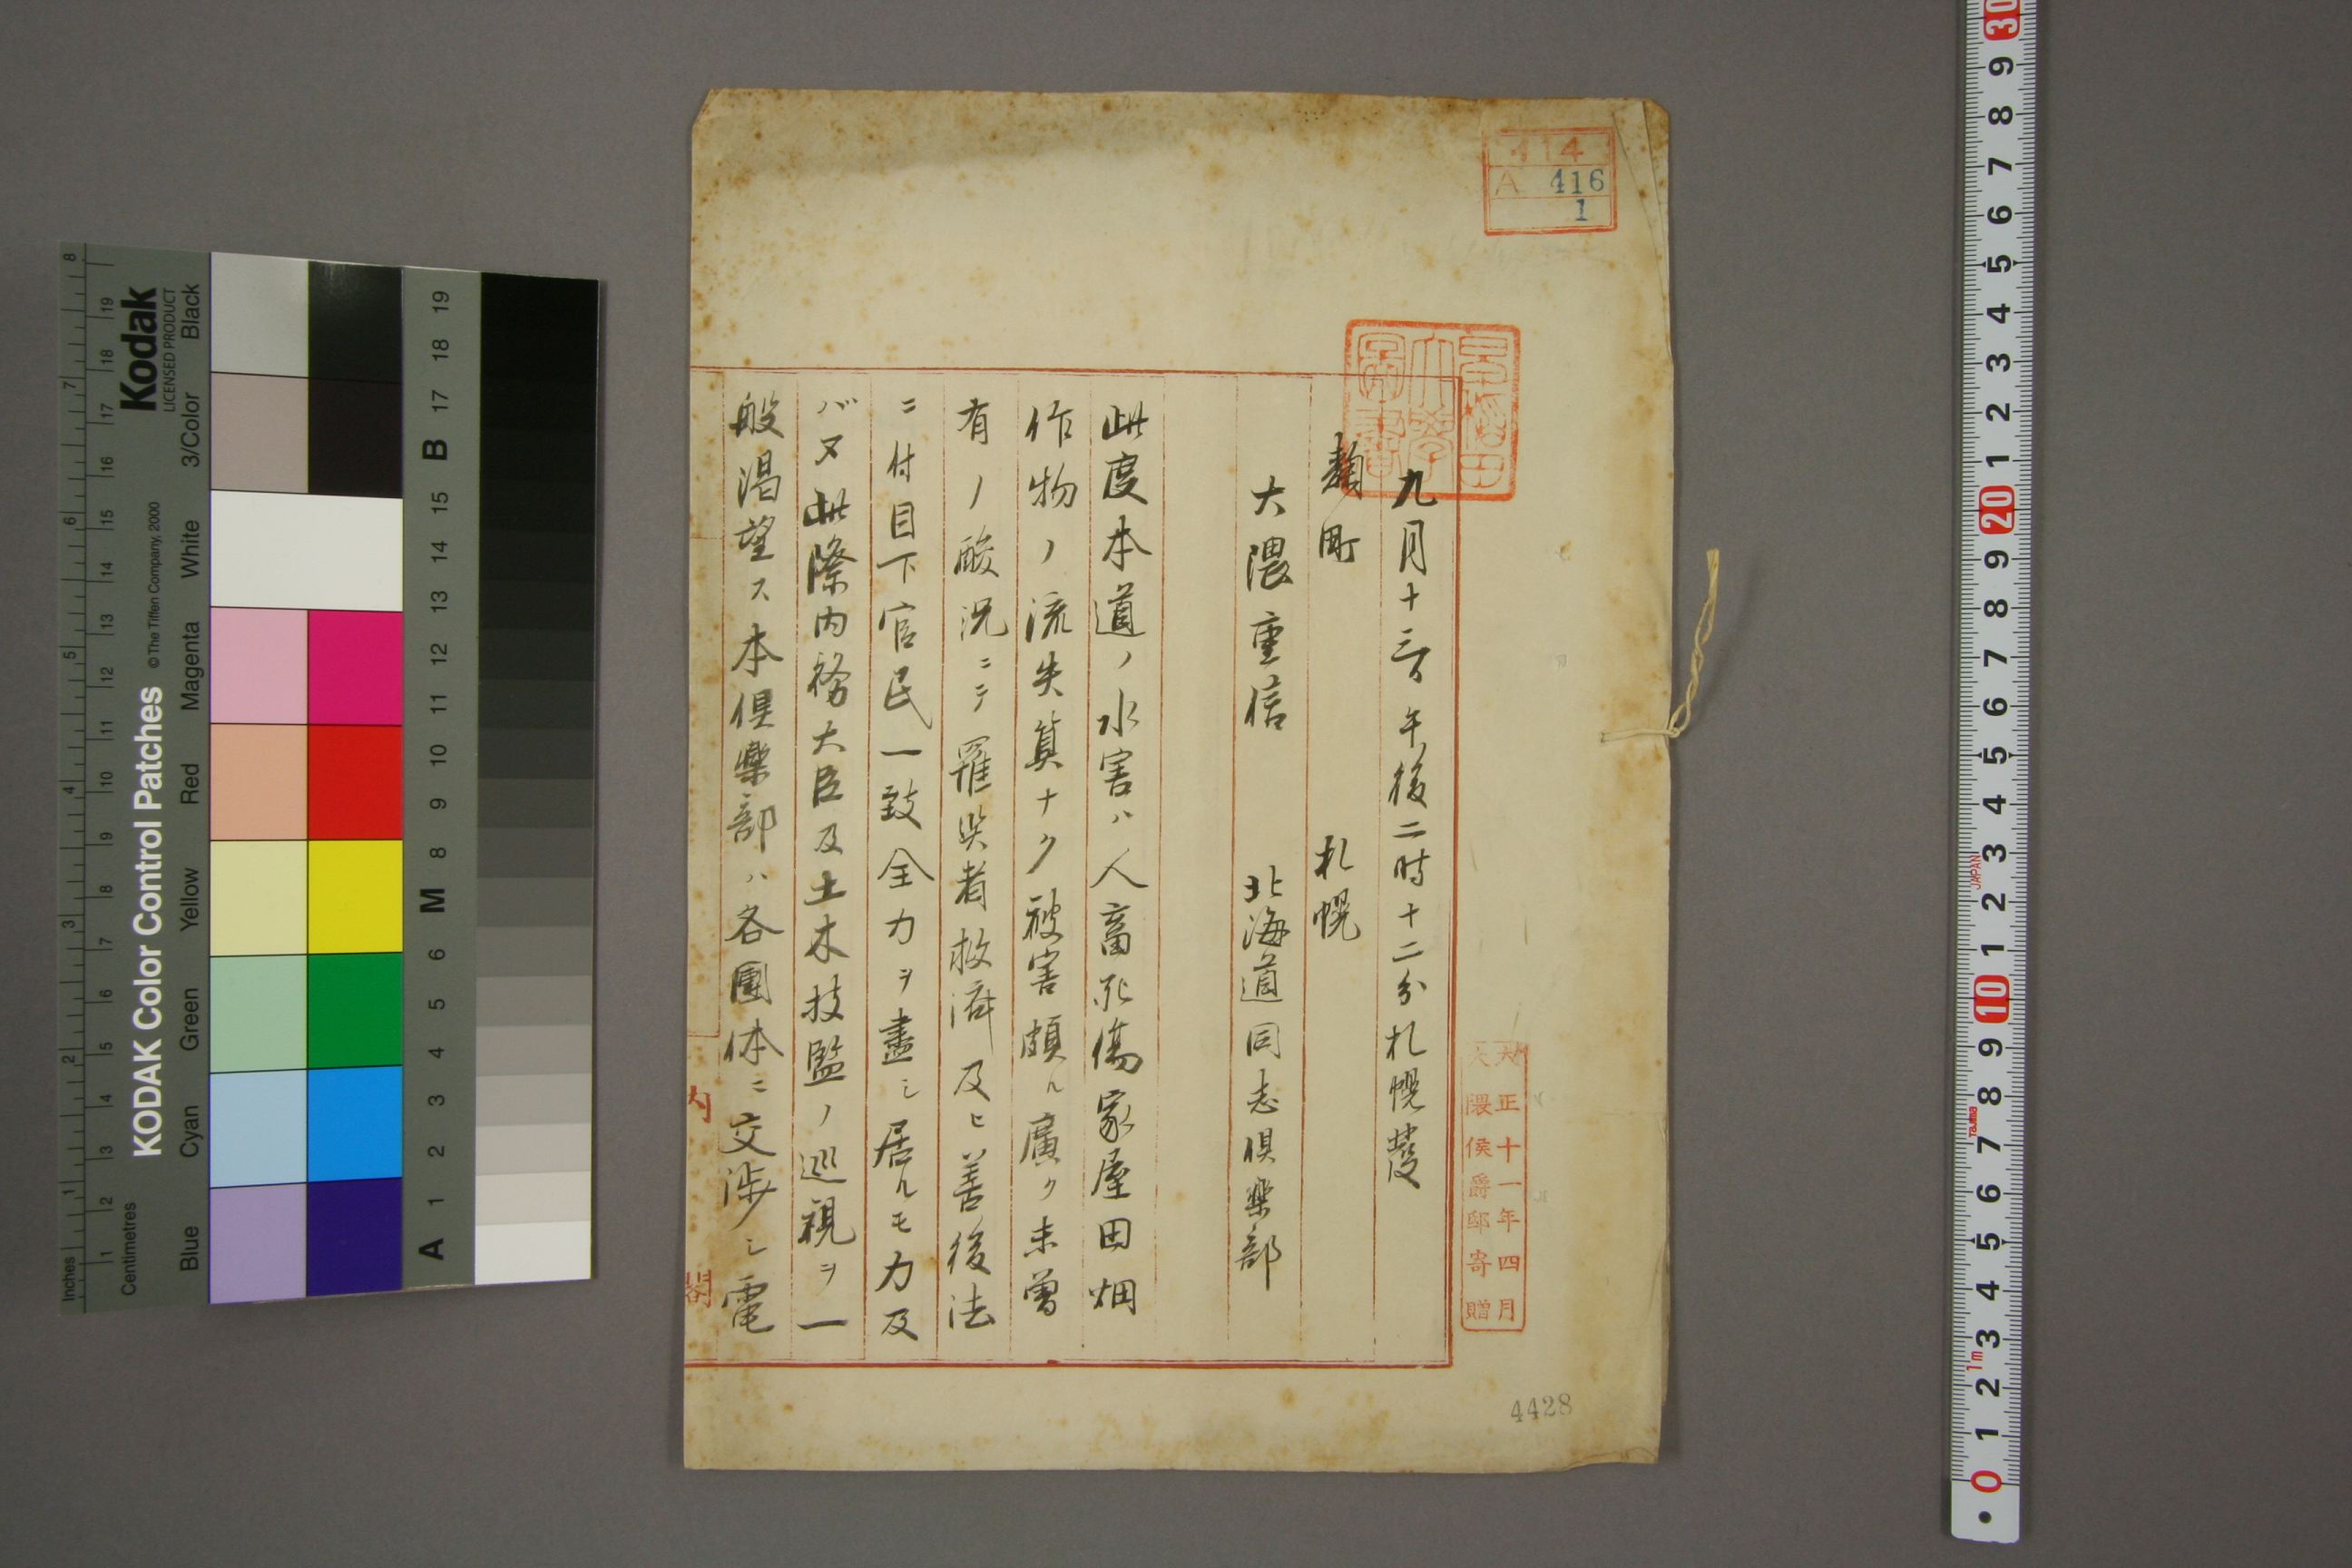 414
A 416
1
早稲田大學圖書
九月十三日午後二時十二分札幌發
麹町 札幌
大隈重信 北海道同志倶楽部
此度本道ノ水害ハ人畜死傷家屋田畑
作物ノ流失算ナク被害頗ル廣ク未曽
有ノ酸況ニテ罹災者救済及ヒ善後法
ニ付目下官民一致全力ヲ盡シ居ルモ力及
バヌ此際内務大臣及土木技監ノ巡視ヲ一
般渇望ス本倶樂部ハ各團体ニ交渉シ電
内閣
大正十一年四月
大隈侯爵邸寄贈
4428
KODAK Color Control Patches
© The Tiffen Company, 2000
Kodak
LICENSED PRODUCT
Inches 1 2 3 4 5 6 7 8
Centimetres 1 2 3 4 5 6 7 8 9 10 11 12 13 14 15 16 17 18 19
Blue Cyan Green Yellow Red Magenta White 3/Color Black
A 1 2 3 4 5 6 M 8 9 10 11 12 13 14 15 B 17 18 19
0 1 2 3 4 5 6 7 8 9 10 1 2 3 4 5 6 7 8 9 20 1 2 3 4 5 6 7 8 9 30
1m
Tajima
JAPAN